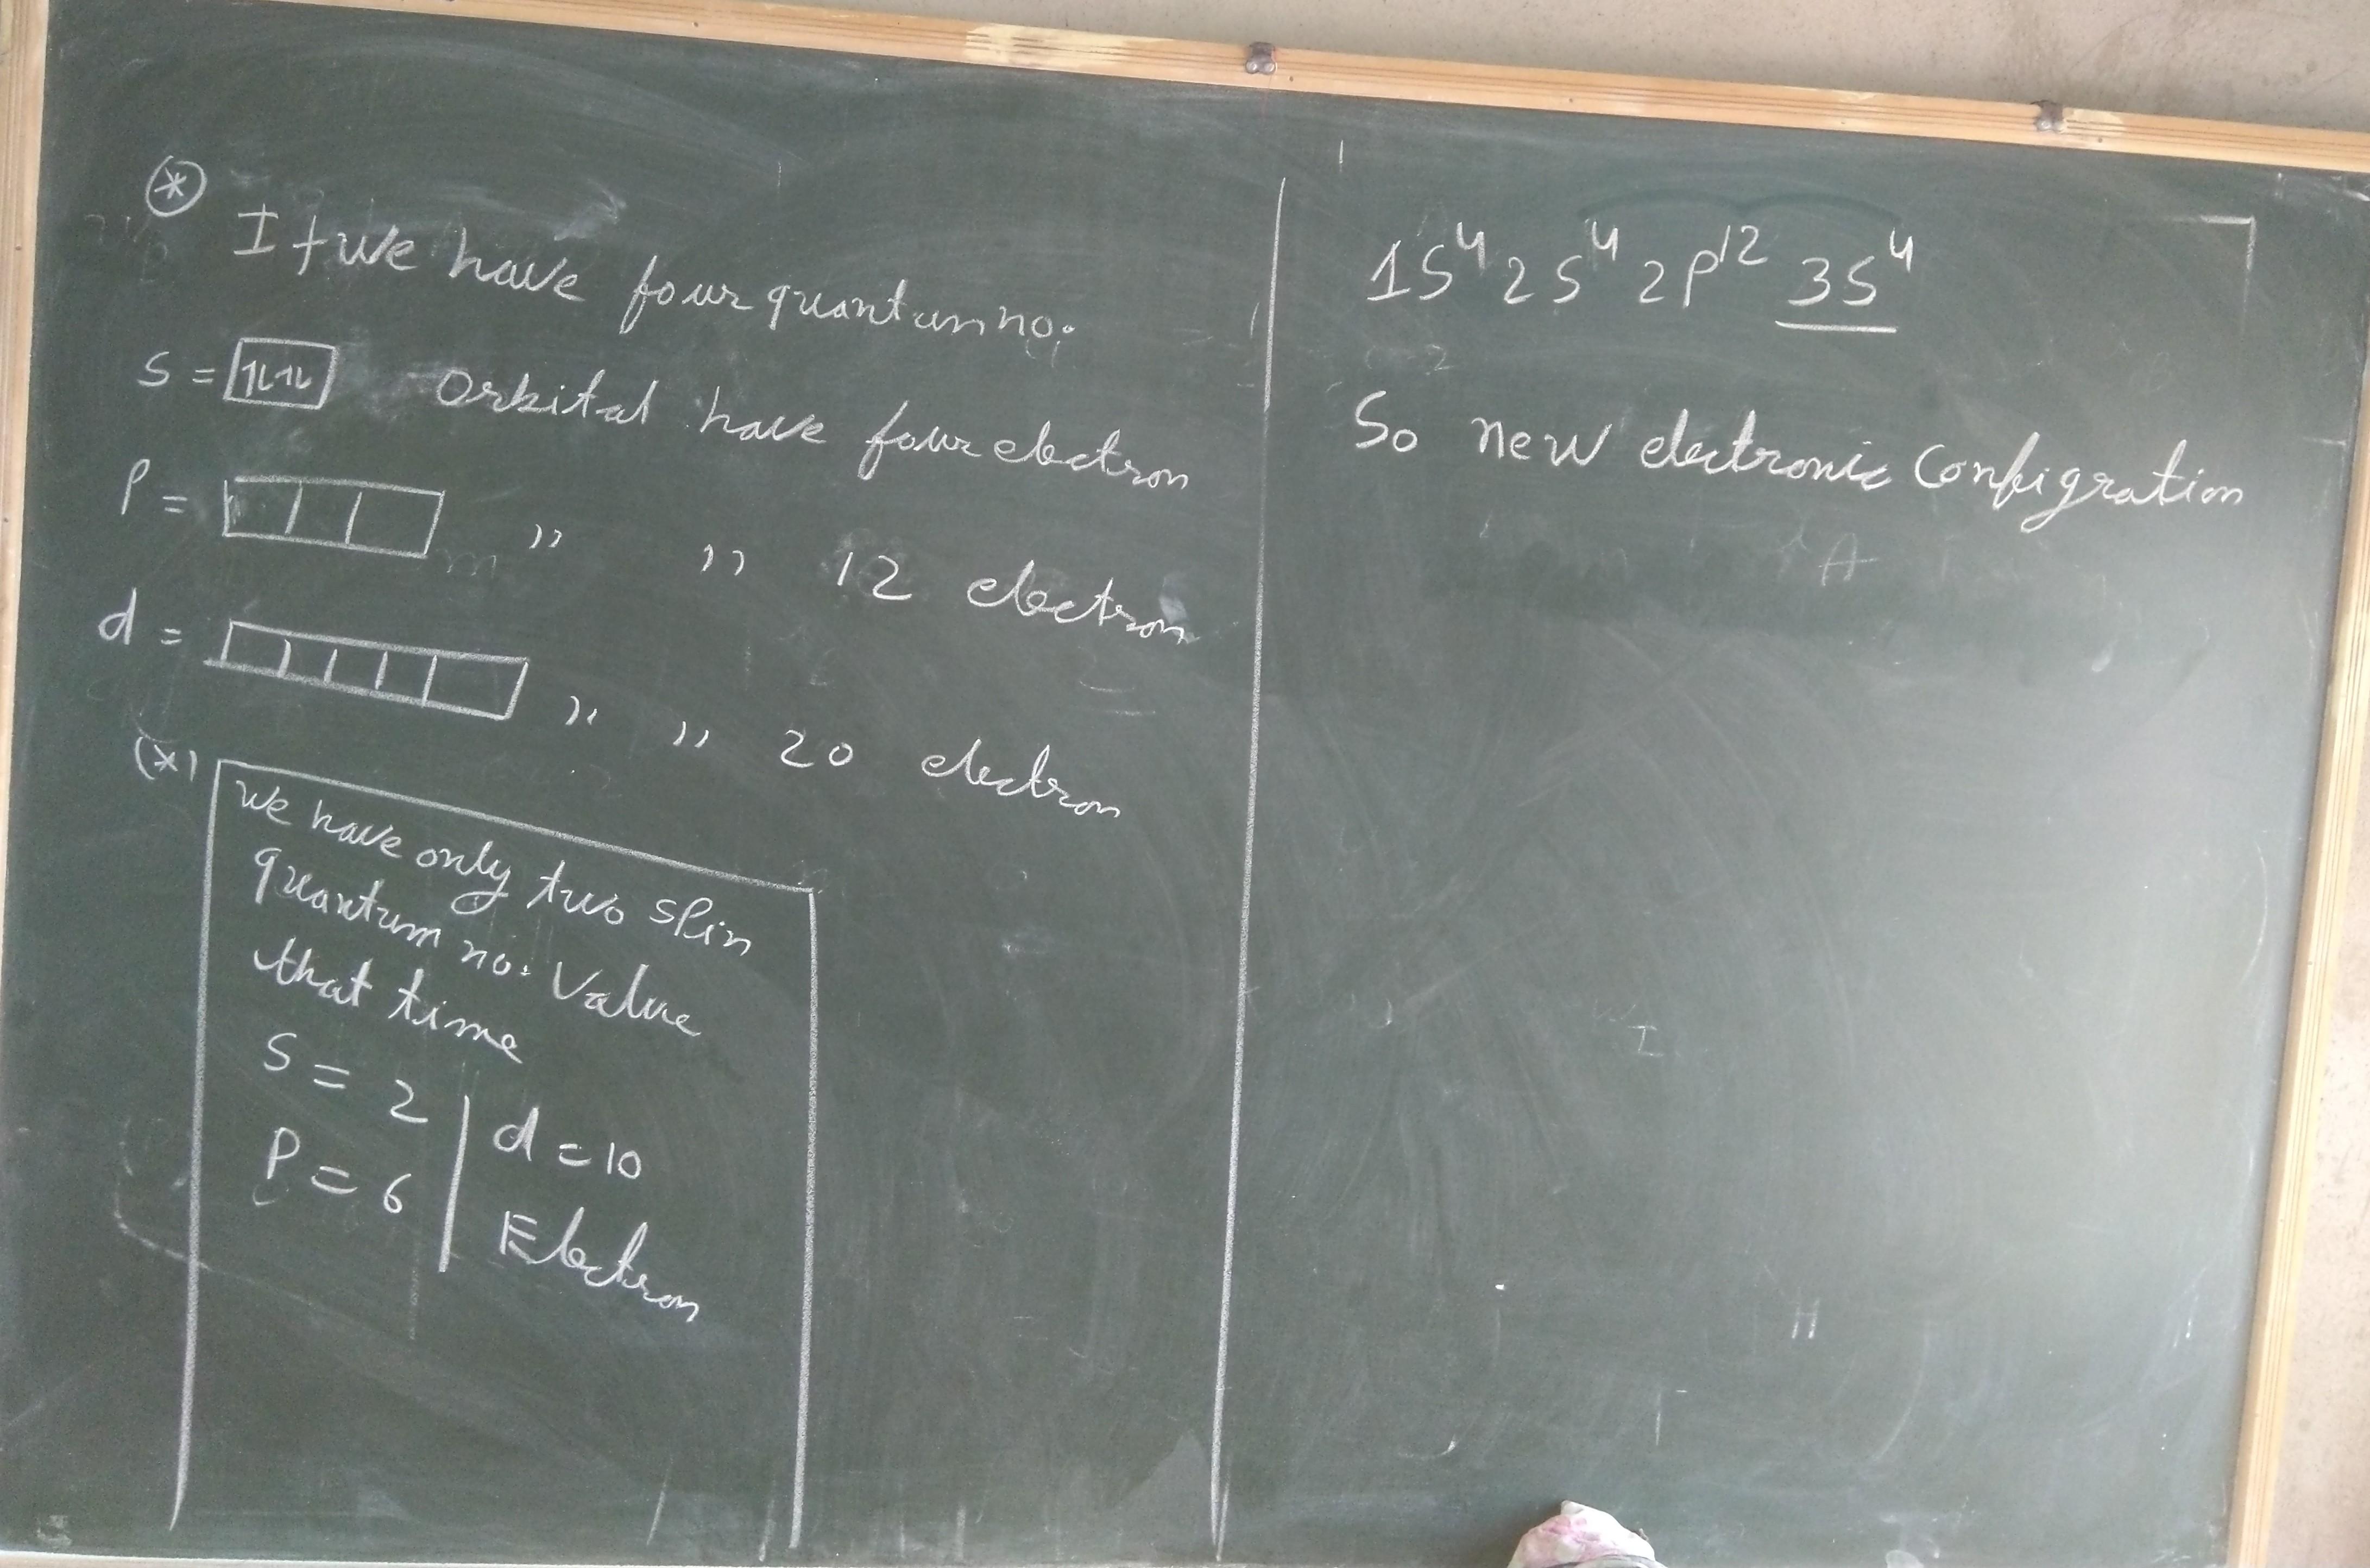 (*) If we have four quantum no.
S = [1212] Orbital have four electron
P = ,, ,, 12 electron
d = ,, ,, 20 electron
(*) We have only two spin
quantum no. Value
that time
S = 2 | d = 10
P = 6 | Electron
1S⁴ 2S⁴ 2P¹² 3S⁴
So new electronic Configration